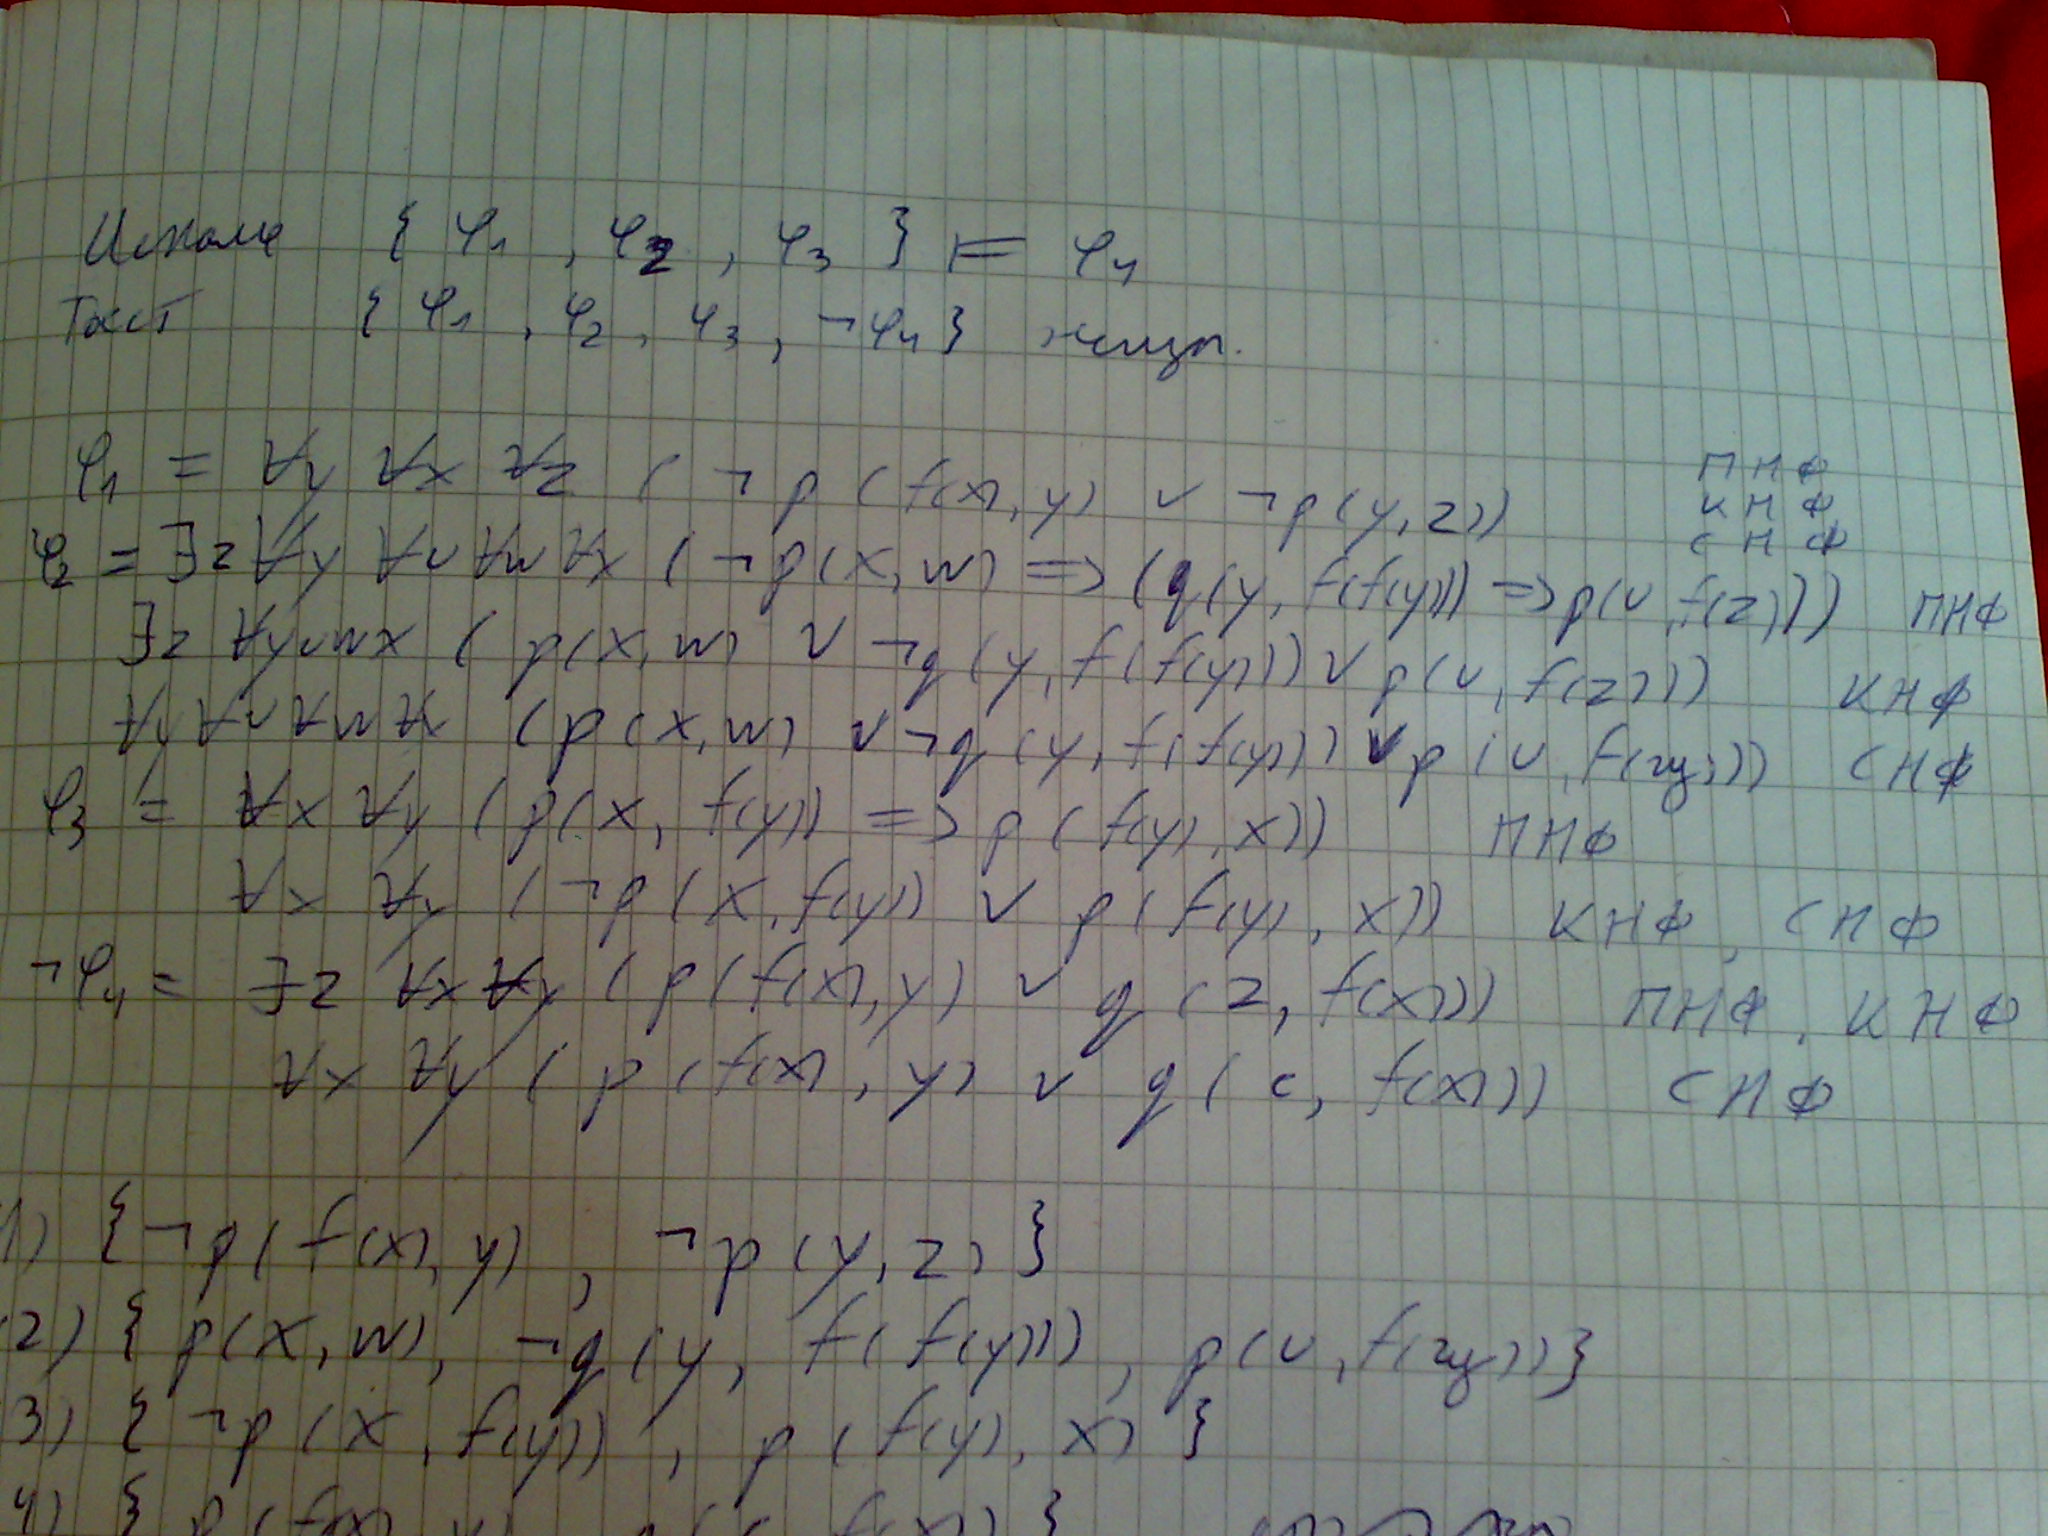 Искаме { φ1 , φ2 , φ3 } ⊨ φ4
Тоест { φ1 , φ2 , φ3 , ¬φ4 } неизп.
φ1 = ∀y ∀x ∀z ( ¬p ( f(x), y) ∨ ¬p(y, z)) ПНФ
КНФ
СНФ
φ2 = ∃z ∀y ∀u ∀w ∀x ( ¬p(x, w) => (q(y, f(f(y))) => p(u, f(z)))) ПНФ
∃z ∀yuwx ( p(x, w) ∨ ¬q(y, f(f(y))) ∨ p(u, f(z))) КНФ
∀y ∀u ∀w ∀x (p(x, w) ∨ ¬q(y, f(f(y))) ∨ p(u, f(zц))) СНФ
φ3 = ∀x ∀y ( p(x, f(y)) => p( f(y), x)) ПНФ
∀x ∀y ( ¬p(x, f(y)) ∨ p( f(y), x)) КНФ, СНФ
¬φ4 = ∃z ∀x ∀y ( p(f(x), y) ∨ q(z, f(x))) ПНФ, КНФ
∀x ∀y ( p(f(x), y) ∨ q(c, f(x))) СНФ
1) { ¬p( f(x), y) , ¬p(y, z) }
2) { p(x, w), ¬q(y, f(f(y))) , p(u, f(zц)) }
3) { ¬p(x, f(y)) , p( f(y), x) }
4) { p(f(x), y) q(c, f(x)) }